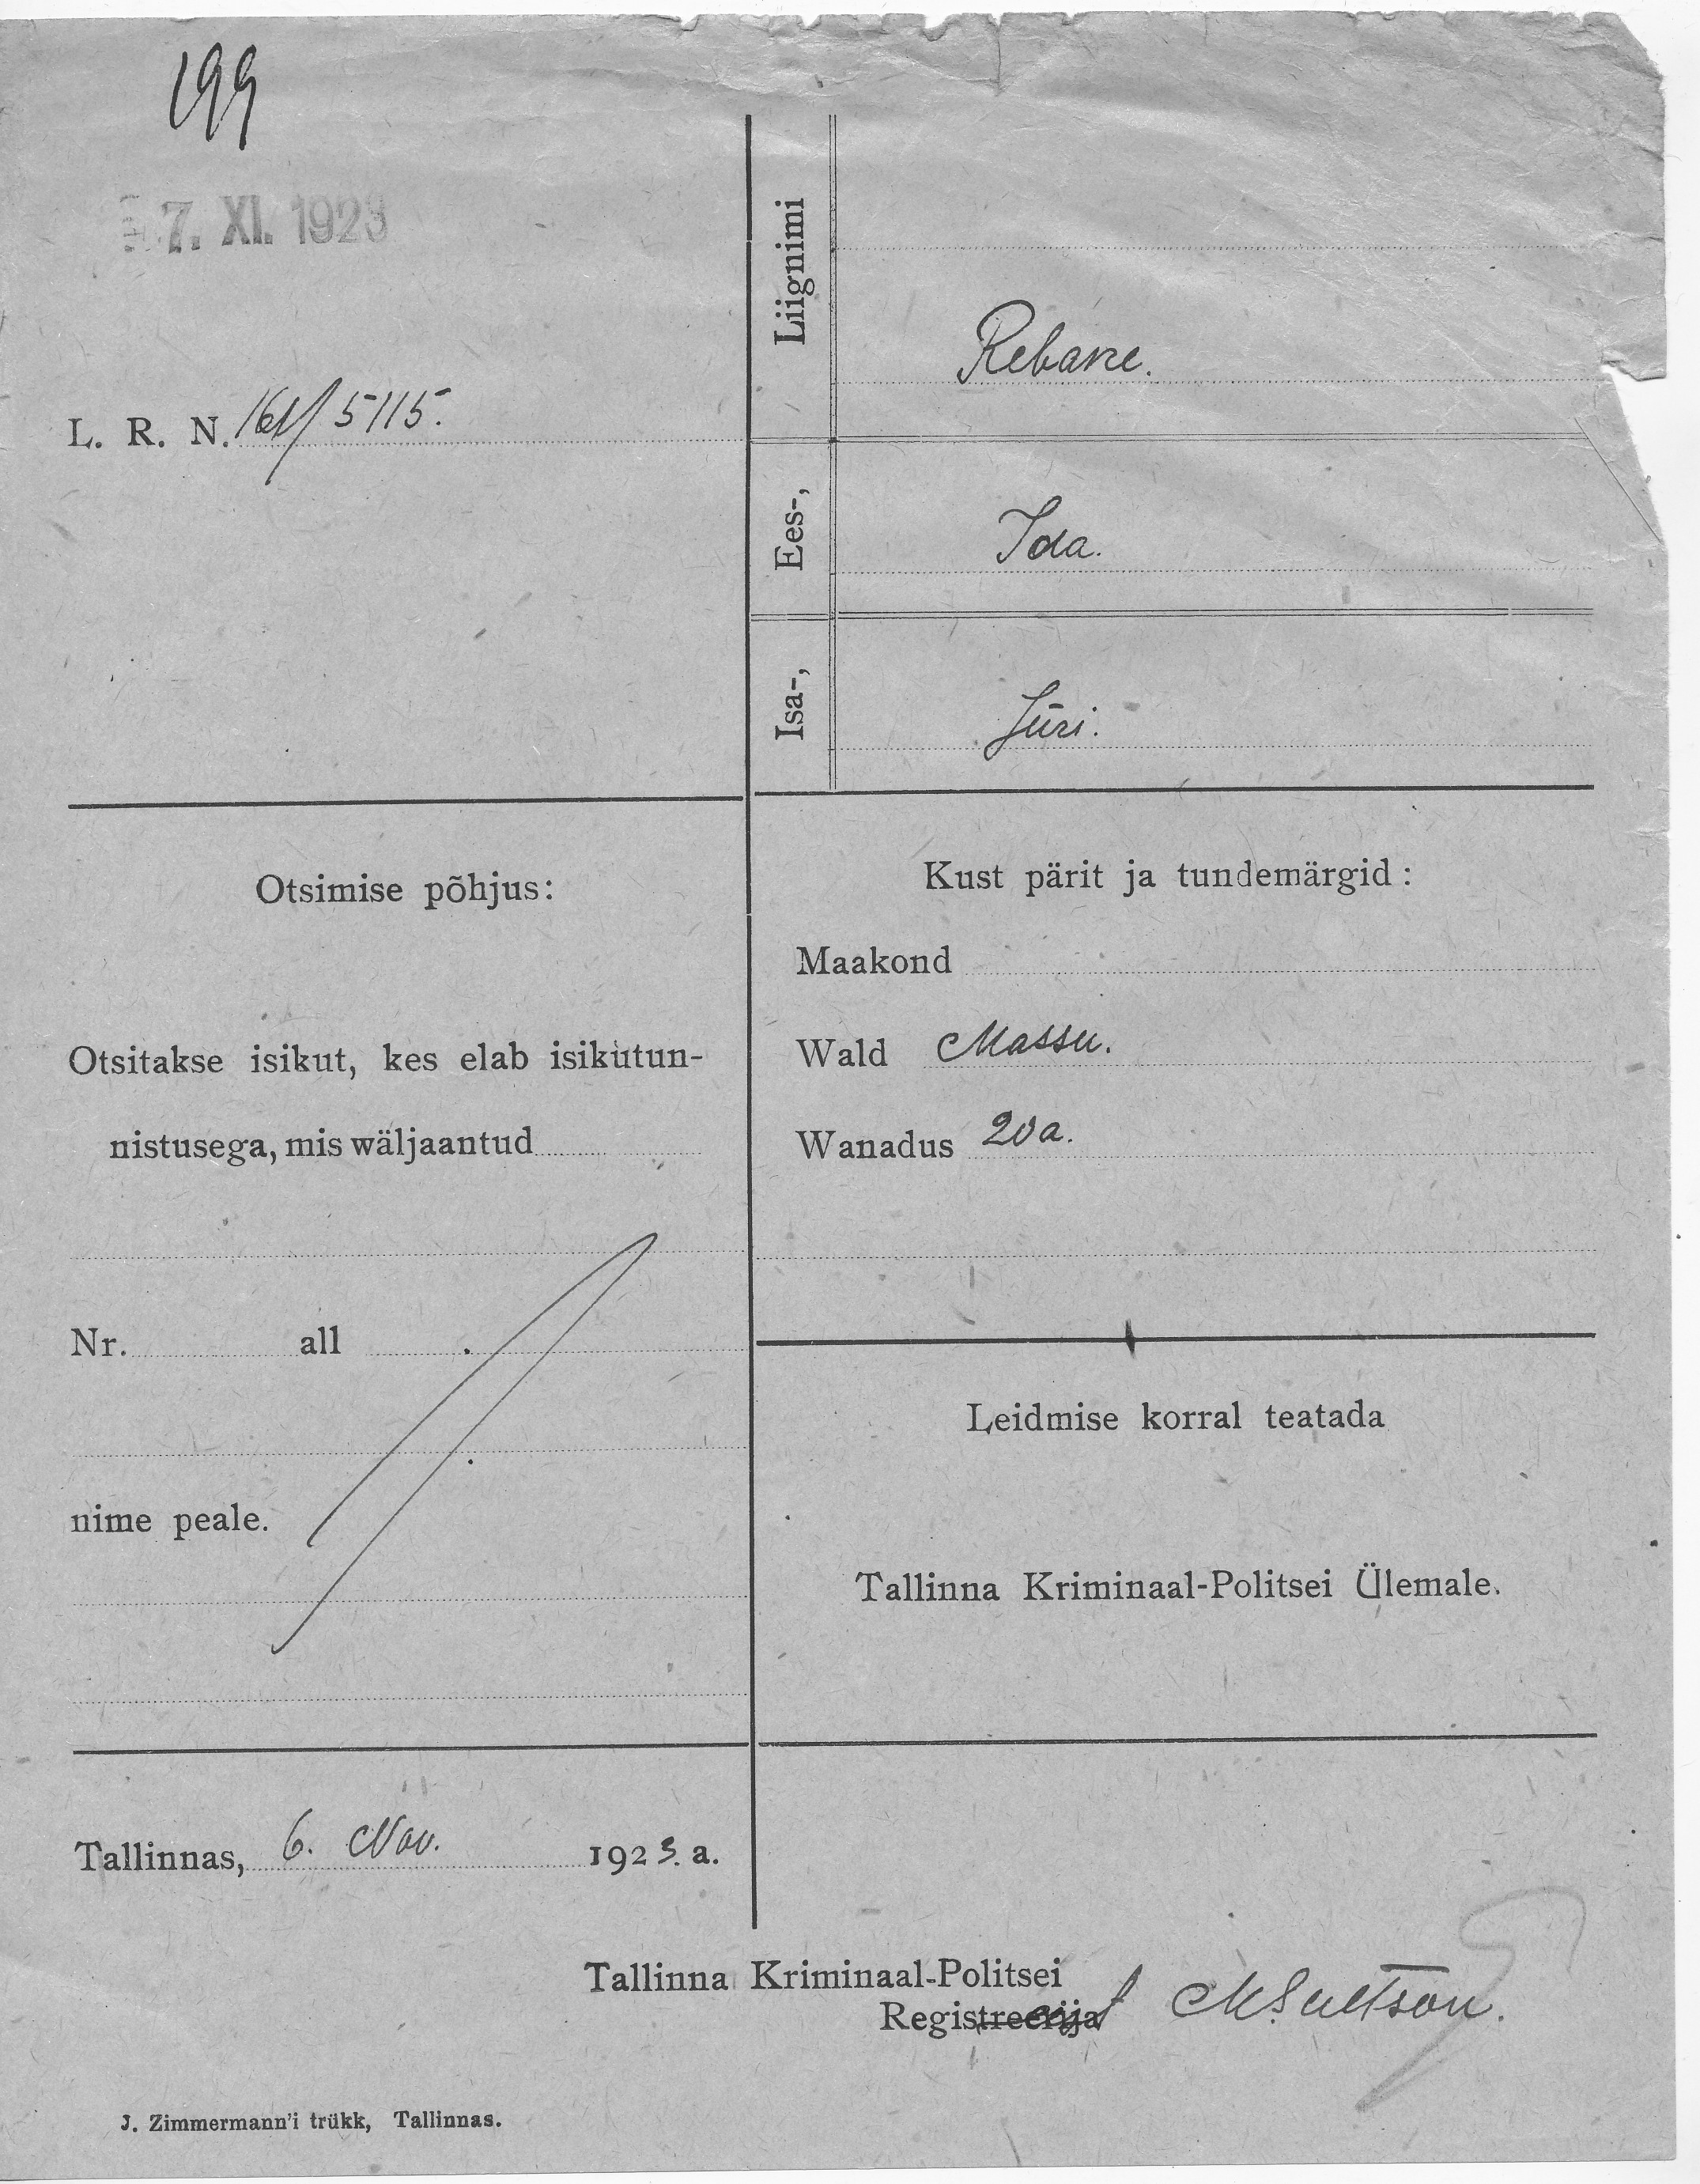 199
7. XI. 1923
L. R. N. 161/5115.
Liignimi
Rebane.
Ees-,
Ida.
Isa-,
Jüri.
Otsimise põhjus:
Otsitakse isikut, kes elab isikutun-
nistusega, mis wäljaantud
Nr. all
nime peale.
Kust pärit ja tundemärgid:
Maakond
Wald Massu.
Wanadus 20 a.
Leidmise korral teatada
Tallinna Kriminaal-Politsei Ülemale.
Tallinnas, 6. Nov. 1923. a.
Tallinna Kriminaal-Politsei
Registreerija
J. Zimmermann'i trükk, Tallinnas.